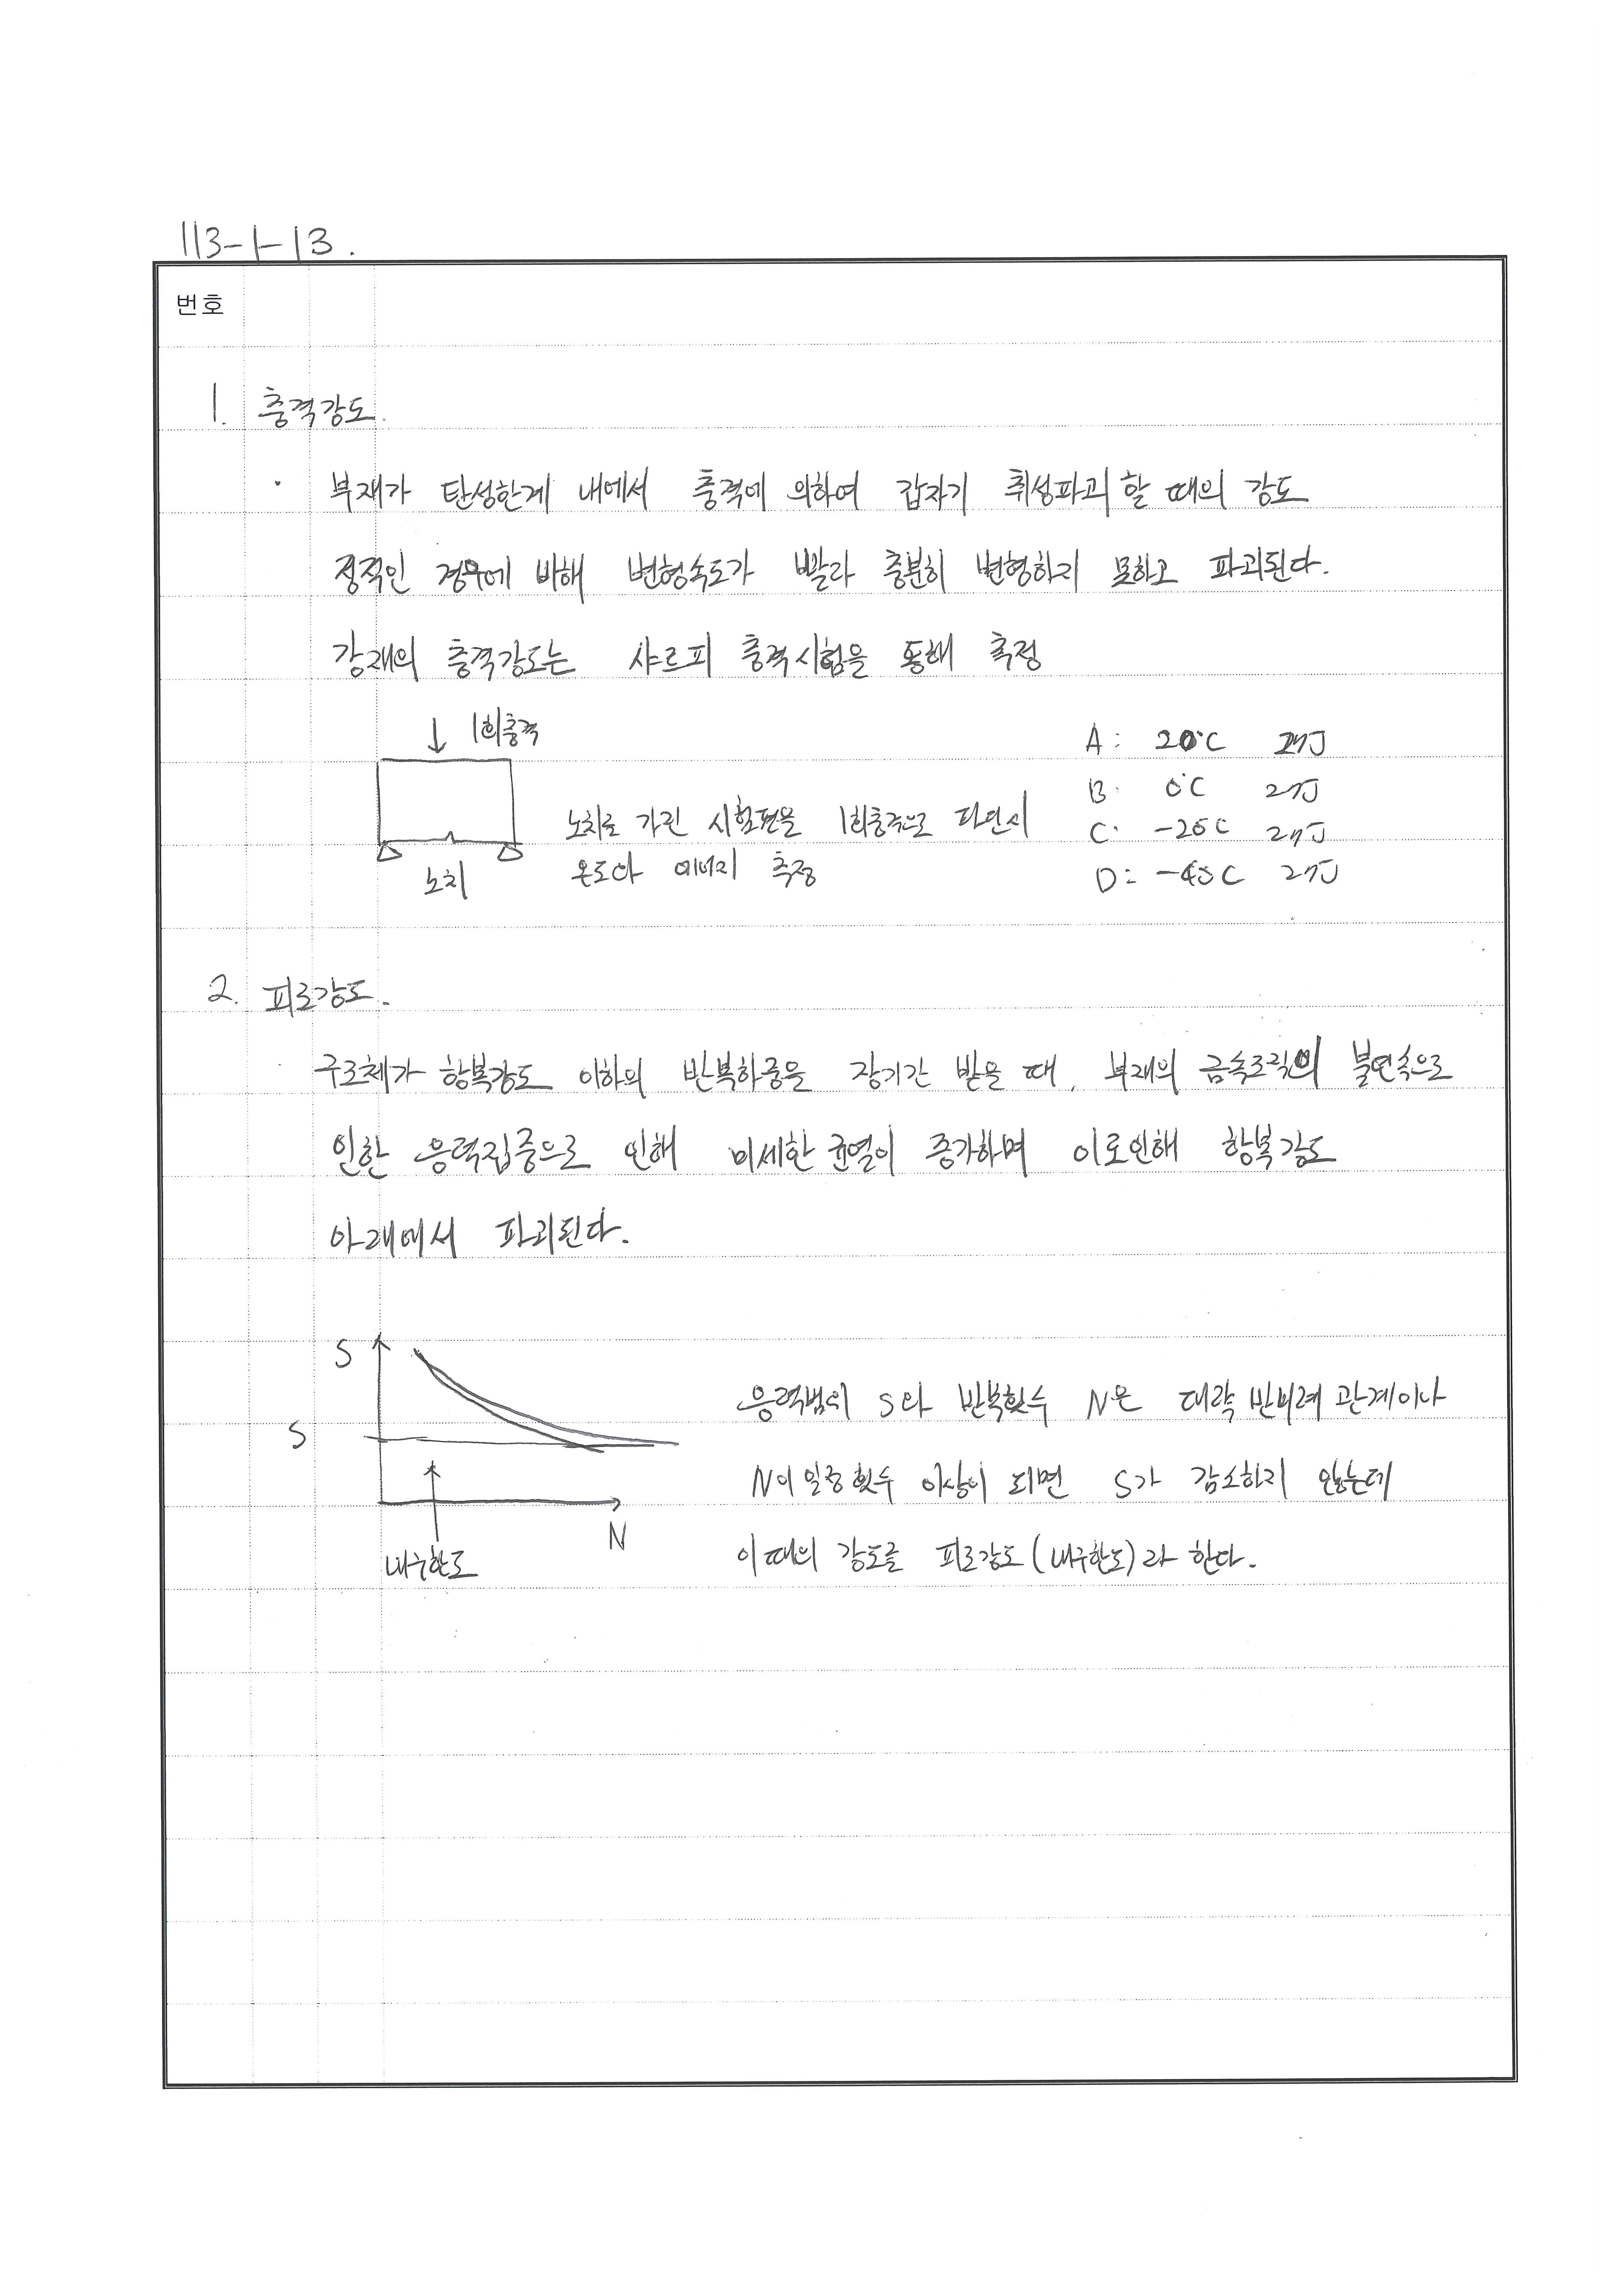 113-1-13.
번호
1. 충격강도.
· 부재가 탄성한계 내에서 충격에 의하여 갑자기 취성파괴 할 때의 강도
정적인 경우에 비해 변형속도가 빨라 충분히 변형하지 못하고 파괴된다.
강재의 충격강도는 샤르피 충격시험을 통해 측정
↓ 1회충격
노치
노치를 가진 시험편을 1회충격으로 파단시
온도와 에너지 측정
A: 20°C 27J
B: 0°C 27J
C: -20C 27J
D: -40C 27J
2. 피로강도.
· 구조체가 항복강도 이하의 반복하중을 장기간 받을 때, 부재의 금속조직의 불연속으로
인한 응력집중으로 인해 미세한 균열이 증가하며 이로인해 항복강도
아래에서 파괴된다.
S
S
N
내구한도
응력범위 S와 반복횟수 N은 대략 반비례 관계이나
N이 일정횟수 이상이 되면 S가 감소하지 않는데
이 때의 강도를 피로강도(내구한도)라 한다.